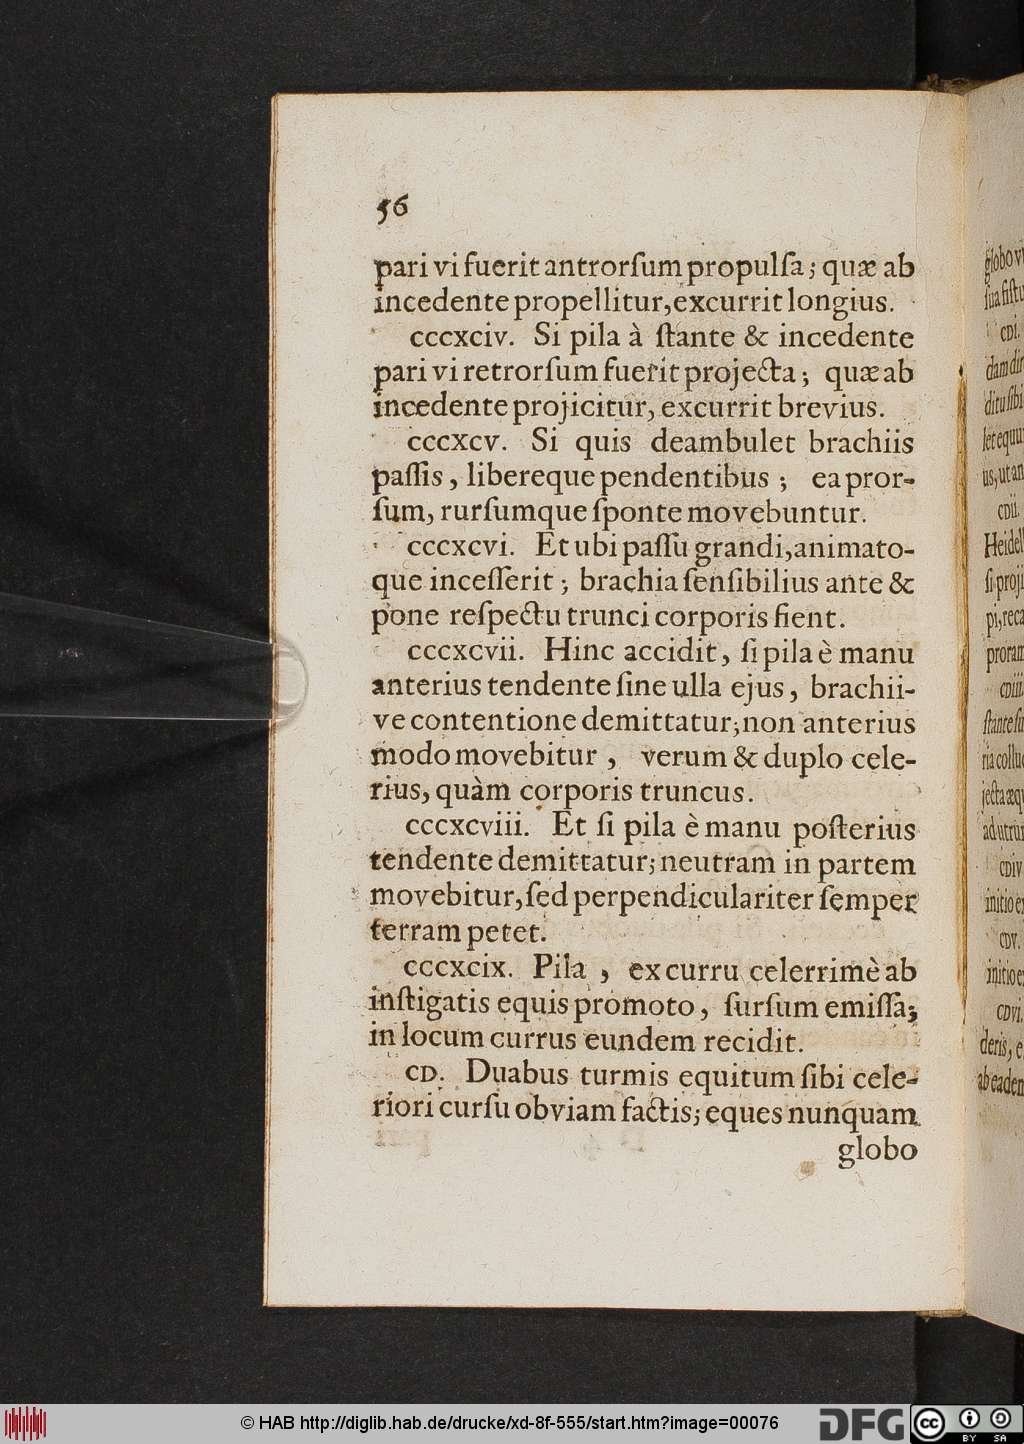 56
pari vi fuerit antrorſum propulſa; quæ ab
incedente propellitur, excurrit longius.
cccxciv. Si pila à ſtante & incedente
pari vi retrorſum fuerit projecta; quæ ab
incedente projicitur, excurrit brevius.
cccxcv. Si quis deambulet brachiis
paſſis, libereque pendentibus; ea pror-
ſum, rurſumque ſponte movebuntur.
cccxcvi. Et ubi paſſu grandi, animato-
que inceſſerit; brachia ſenſibilius ante &
pone reſpectu trunci corporis fient.
cccxcvii. Hinc accidit, ſi pila è manu
anterius tendente ſine ulla ejus, brachii-
ve contentione demittatur; non anterius
modo movebitur, verum & duplo cele-
rius, quàm corporis truncus.
cccxcviii. Et ſi pila è manu poſterius
tendente demittatur; neutram in partem
movebitur, ſed perpendiculariter ſemper
terram petet.
cccxcix. Pila, ex curru celerrimè ab
inſtigatis equis promoto, ſurſum emiſſa;
in locum currus eundem recidit.
CD. Duabus turmis equitum ſibi cele-
riori curſu obviam factis; eques nunquam
globo
globo
ſua
CDI.
dam
ditu ſibi
let
us, ut an
CDII.
Heidel
ſi proji
pi, reca
proram
CDIII.
ſtante
ria
jecta
ad
CDIV
initio
CDV.
initio
CDVI.
deris,
ab
© HAB http://diglib.hab.de/drucke/xd-8f-555/start.htm?image=00076
DFG
cc
BY SA